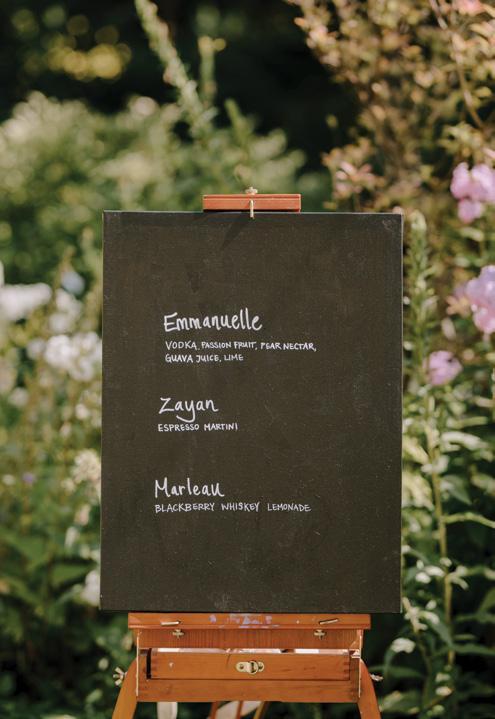 Emmanuelle
VODKA, PASSION FRUIT, PEAR NECTAR,
GUAVA JUICE, LIME
Zayan
ESPRESSO MARTINI
Marleau
BLACKBERRY WHISKEY LEMONADE